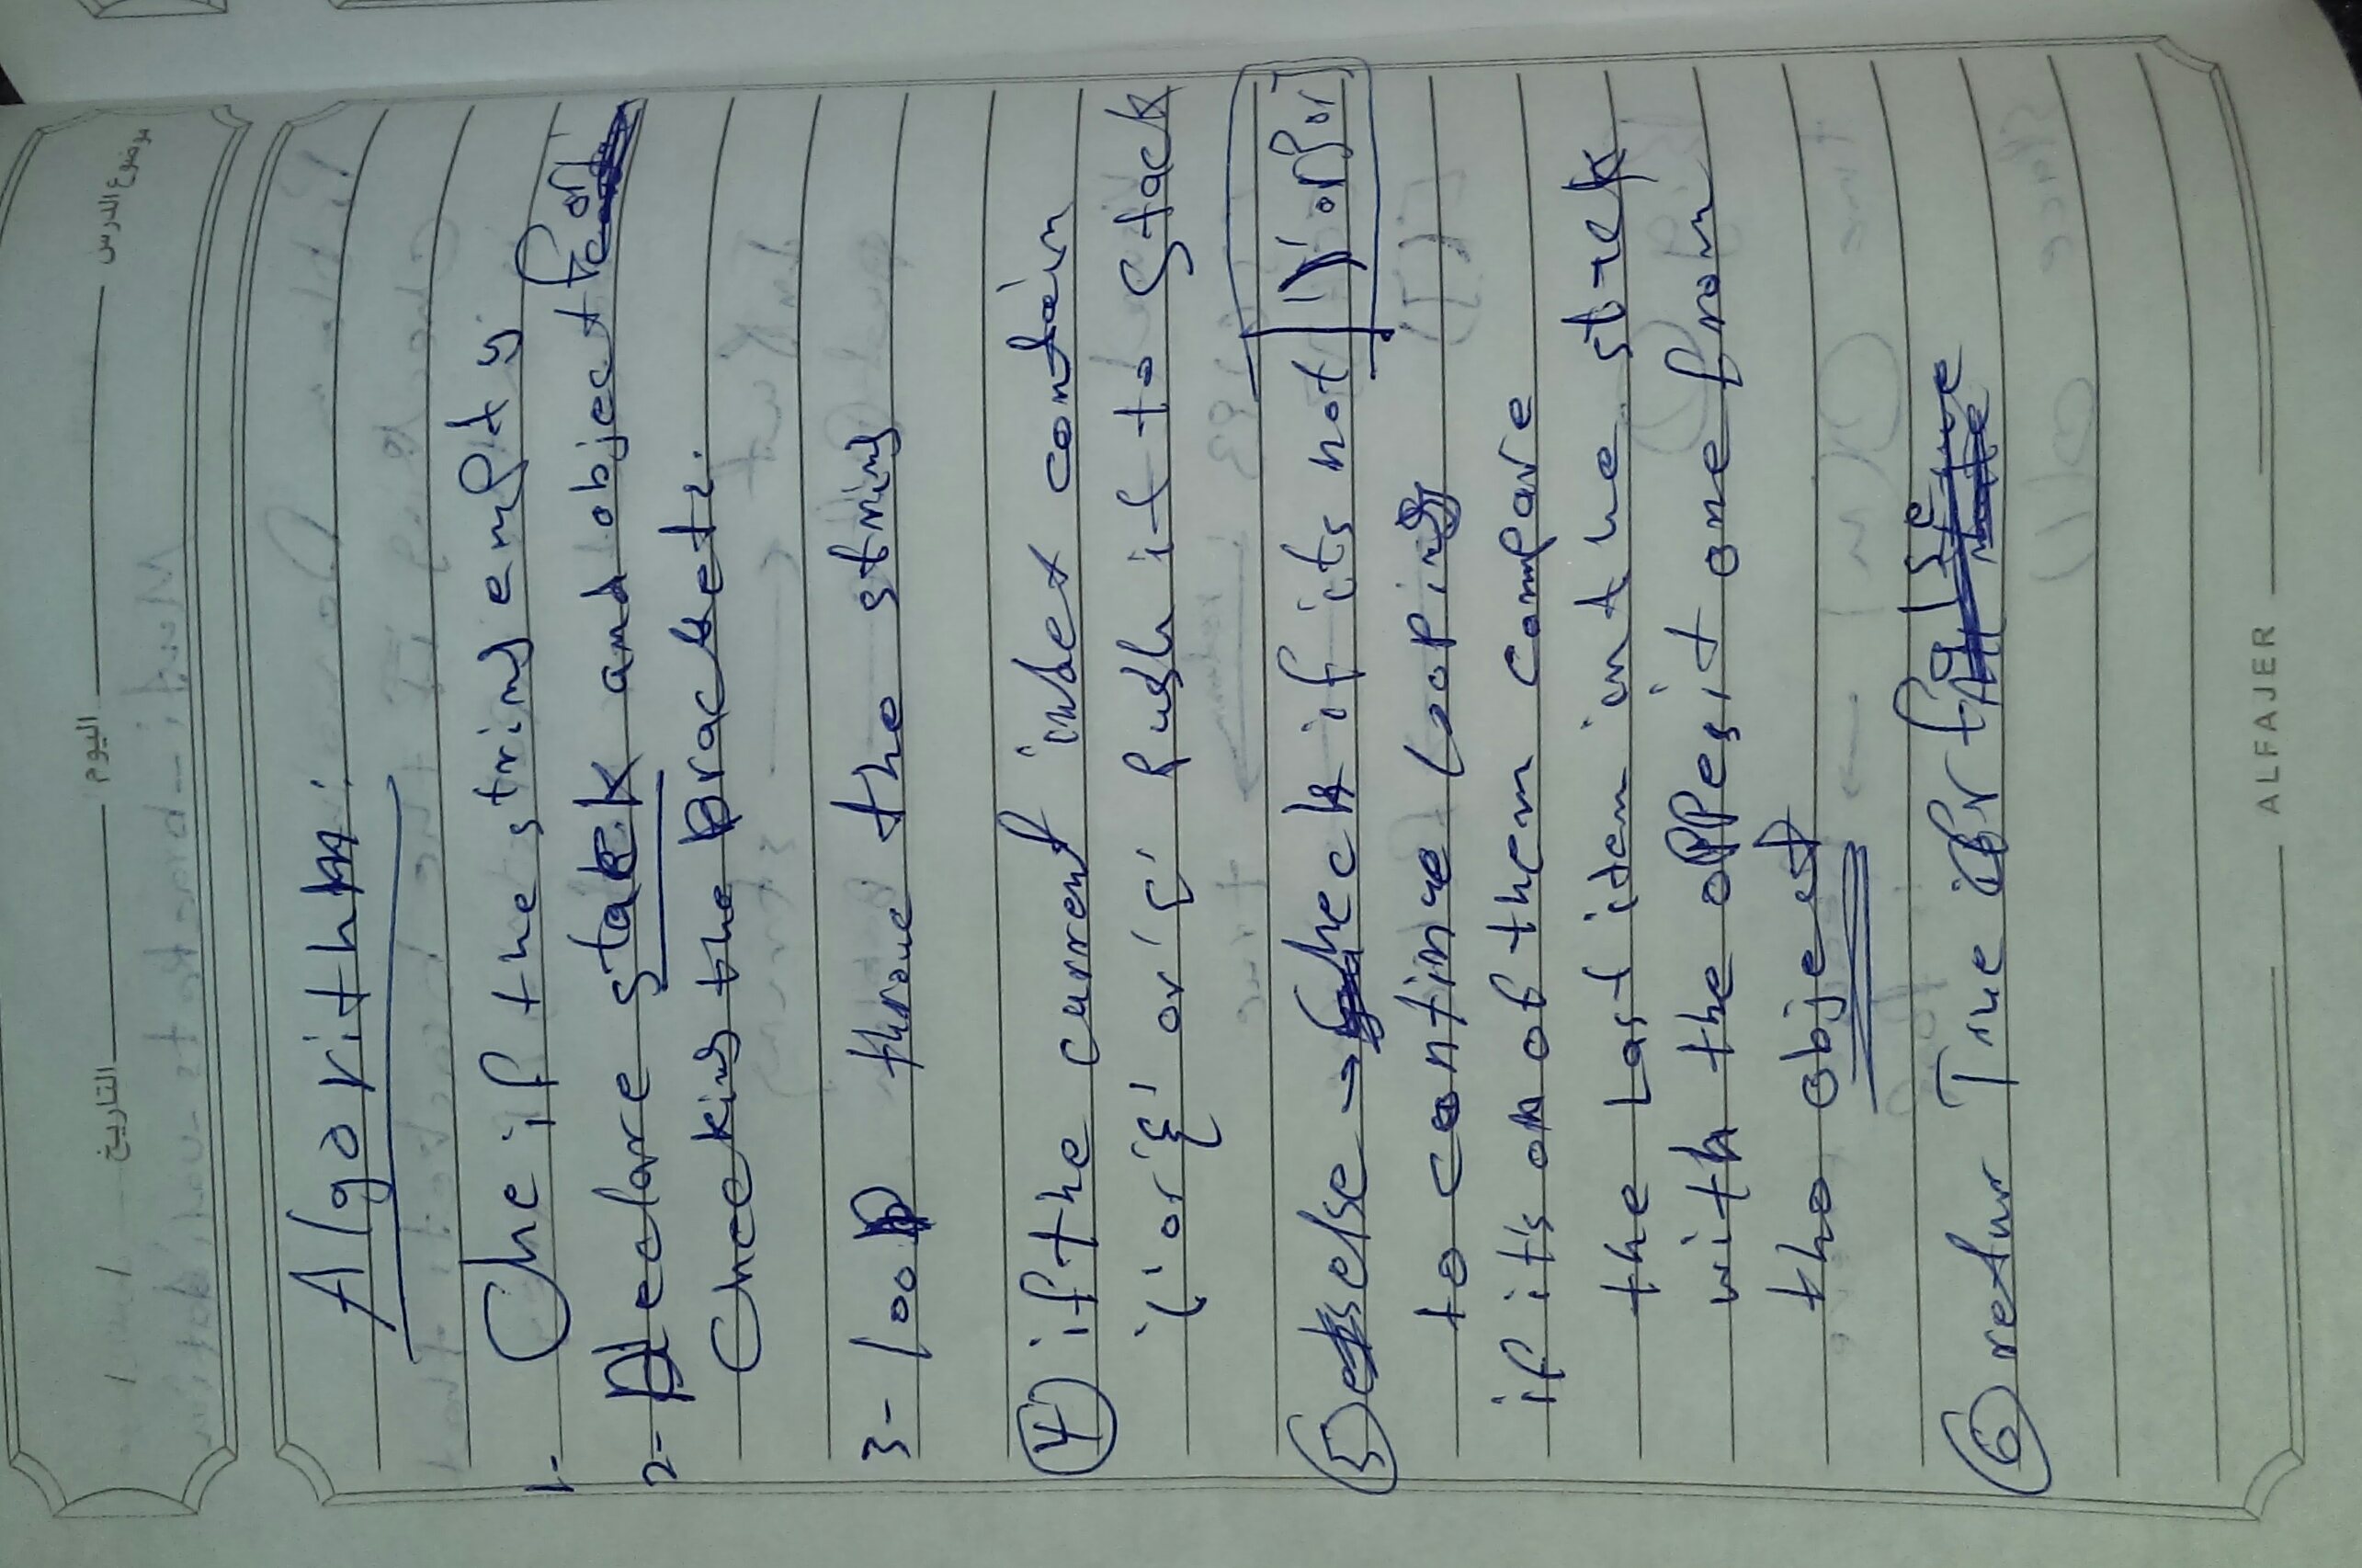 موضوع الدرس
اليوم
التاريخ
Algorithm:
1- Che if the string empty
2- Declare stack and object for
Checking the Brackets.
3- loop throue the string
4 if the current index contain
'(' or '{' or '[' Push it to stack
5 else → check if its not ')' or '}' or ']'
to continue looping
if it's on of them compare
the Last item in the stack
with the oppesit one from
the object
6 retur True or false
ALFAJER